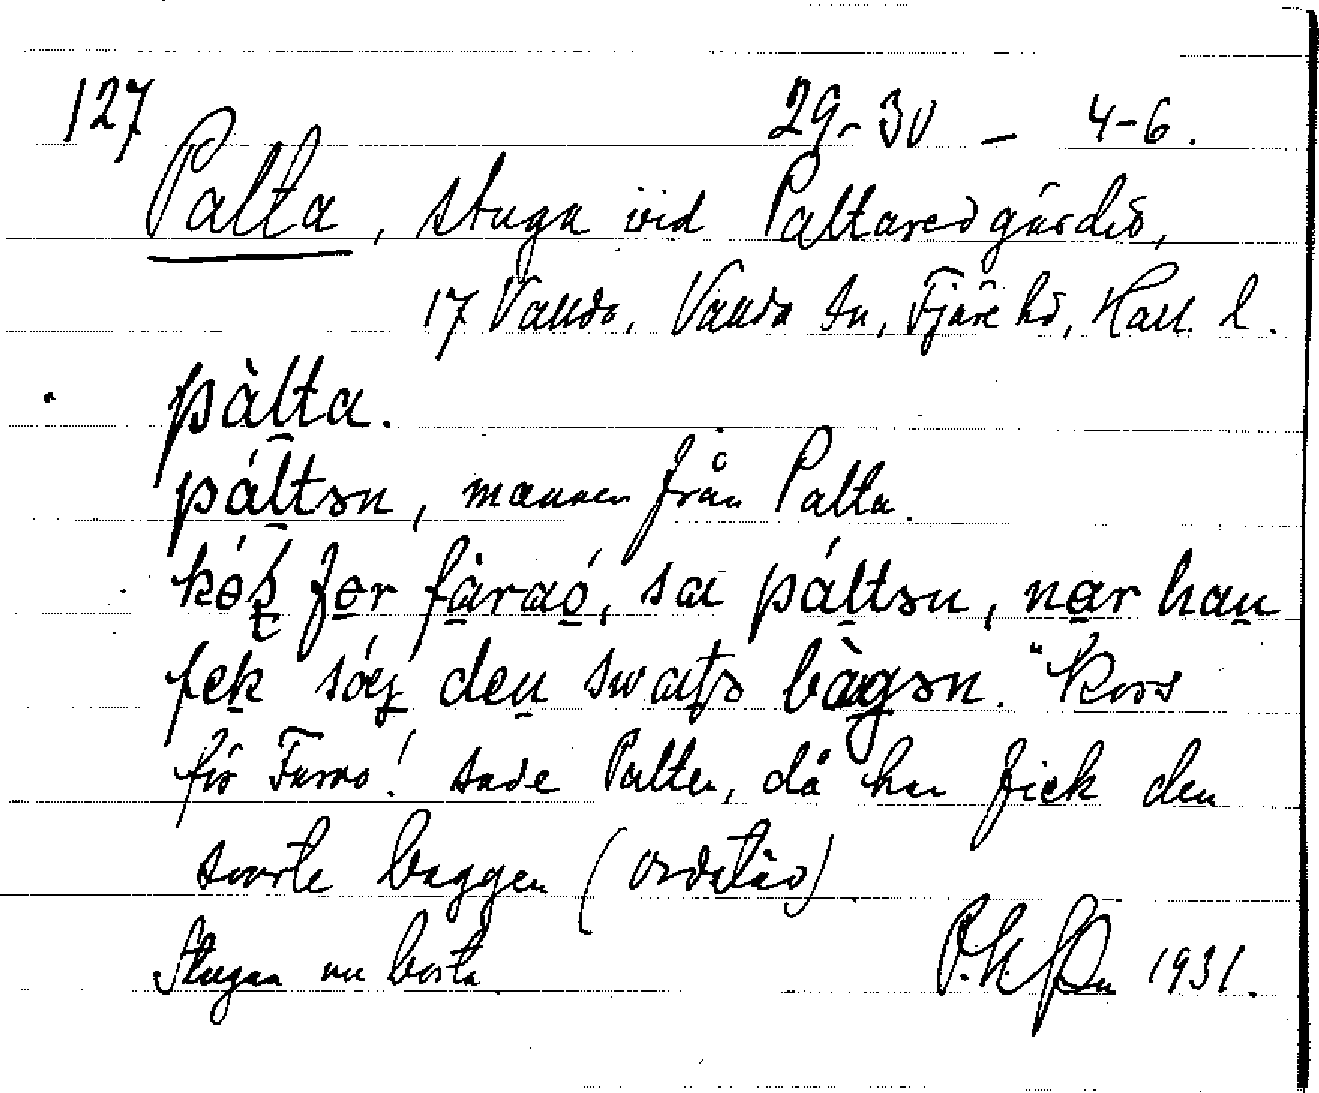 127 29-30 – 4-6.
Palta, stuga vid Paltaredgärdet,
17 Vallda, Vallda sn, Fjäre hd, Hall. l.
pàlta.
páltən, mannen från Palta.
kós fɵr fàraó, sa páltən, nar han
fek den swatə bàgən. "Kors
för Farao! sade Palten, då han fick den
svarte baggen (ordstäv)
Stugan nu borta 1931.